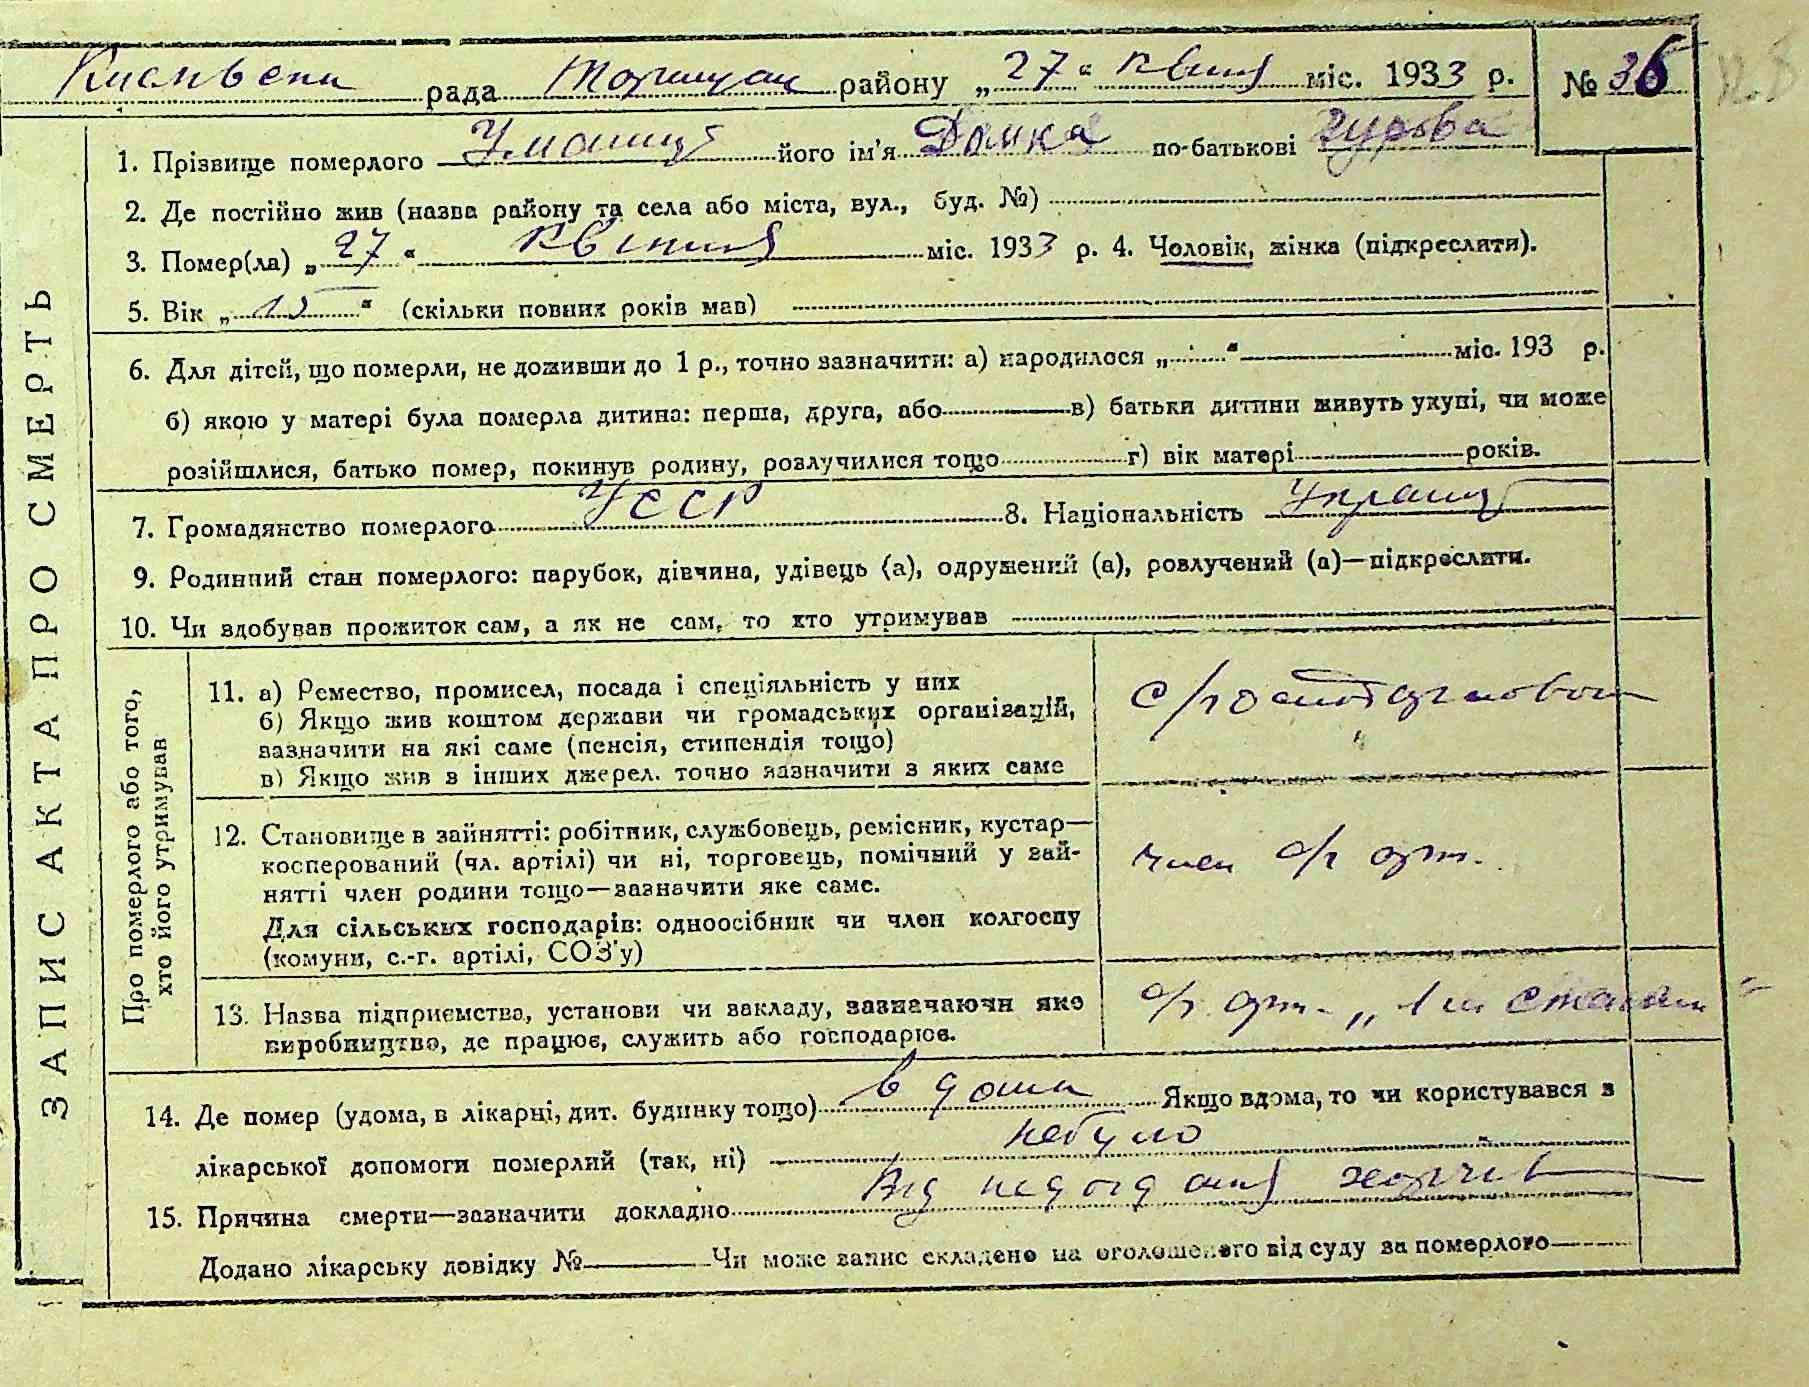 рада району „27“ квітня міс. 1933 р. № 36
1. Прізвище померлого його ім'я Домка по-батькові Гурова
2. Де постійно жив (назва району та села або міста, вул., буд. №)
3. Помер(ла) „27“ квітня міс. 1933 р. 4. Чоловік, жінка (підкреслити).
5. Вік „ “ (скільки повних років мав)
6. Для дітей, що померли, не доживши до 1 р., точно зазначити: а) народилося „ “ міс. 193 р.
б) якою у матері була померла дитина: перша, друга, або в) батьки дитини живуть укупі, чи може
розійшлися, батько помер, покинув родину, розлучилися тощо г) вік матері років.
7. Громадянство померлого УССР 8. Національність Украин
9. Родинний стан померлого: парубок, дівчина, удівець (а), одружений (а), розлучений (а)—підкреслити.
10. Чи здобував прожиток сам, а як не сам, то хто утримував
ЗАПИС АКТА ПРО СМЕРТЬ
Про померлого або того, хто його утримував
11. а) Ремество, промисел, посада і спеціяльність у них
б) Якщо жив коштом держави чи громадських організацій,
зазначити на які саме (пенсія, стипендія тощо)
в) Якщо жив з інших джерел. точно зазначити з яких саме
12. Становище в зайнятті: робітник, службовець, ремісник, кустар—
косперований (чл. артілі) чи ні, торговець, помічний у зай-
нятті член родини тощо—зазначити яке саме.
Для сільських господарів: одноосібник чи член колгоспу
(комуни, с.-г. артілі, СОЗ'у)
член с/г арт.
13. Назва підприємства, установи чи закладу, зазначаючи яке
виробництво, де працює, служить або господарює.
с/г. арт.
14. Де помер (удома, в лікарні, дит. будинку тощо) в дома Якщо вдома, то чи користувався з
лікарської допомоги померлий (так, ні) небуло
15. Причина смерти—зазначити докладно Від недоїдання харчів
Додано лікарську довідку № Чи може запис складено на оголошеного від суду за померлого